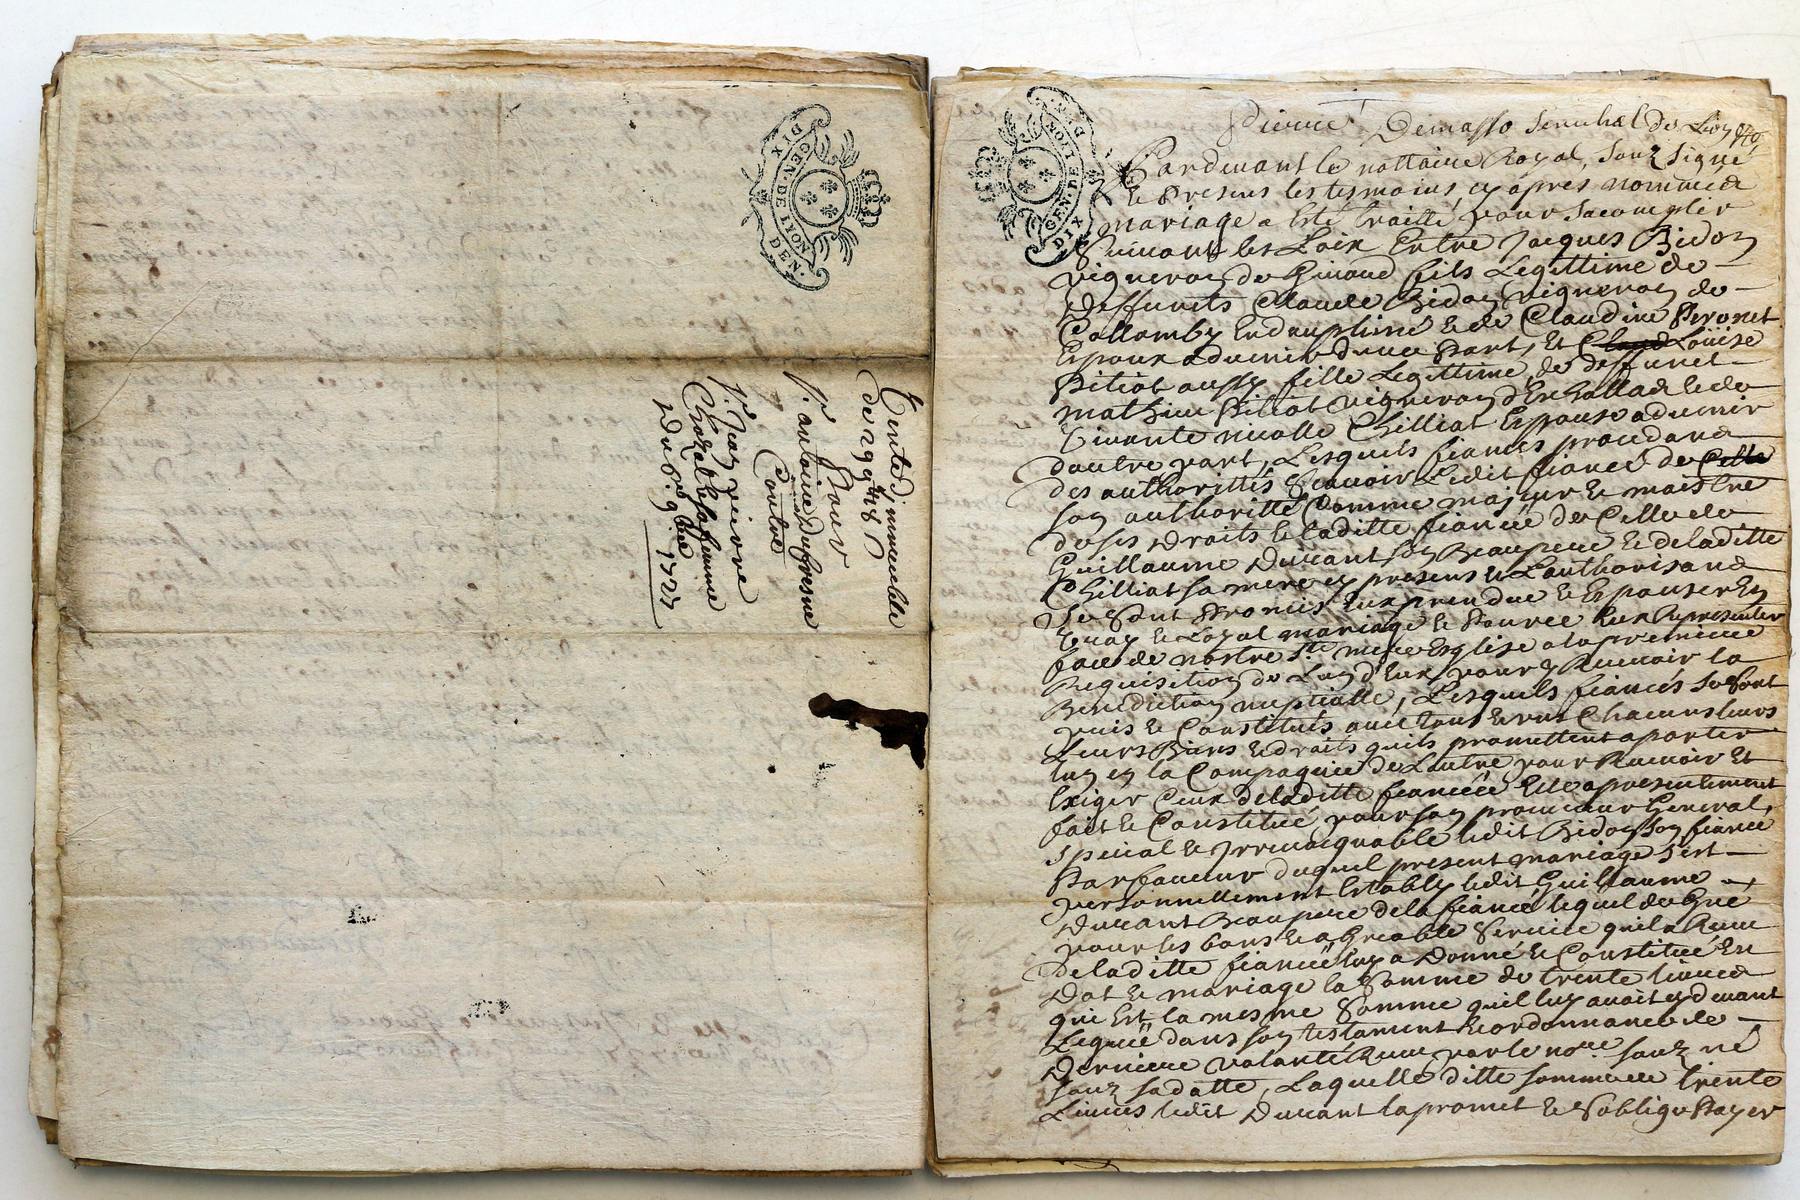 GEN. DE LYON
DIX DEN.
Vente d'immeuble
de 29 # 48 s
Pour
Sr. antoine Dufresne
Contre
Sr. Jean pierre
Chazal et sa femme
Du 6e. 9bre 1727
GEN. DE LYON
DIX DEN.
Pierre Demasso Senechal de Lyon
Pardevant le nottaire Royal, Souz signé
Et Presens les tesmoins cy apres nommés
mariage a Esté traitté pour sacomplir
Suivant les Loix Entre Jacques Bidon
vigneron de fils Legittime de
Deffuncts Claude Bidon vigneron de
Collomby En dauphiné & de Claudine Peronet
Espoux aduenir d'une Part, Et Louise
Pitiot aussy fille Legittime de deffunct
mathieu Pitiot vigneron & de
Vivante nicolle Chilliat Espouse aduenir
dautre part, Lesquels fiancés procedans
des authorittés Scauoir Ledit fiancé de Celle
son authoritté Comme majeur & maistre
de ses droits & laditte fianceë de Celle de
Guillaume Durant son Beaupere & de laditte
Chilliat sa mere cy presens & Lauthorisans
Se sont Promis Eux prendre & Espouser En
Vray & Loyal mariage & Pource Eux Representer
face de nostre Ste. mere Esglise a la premiere
Requisition de Lun d'Eux pour y Receuoir la
Benediction nuptialle, Lesquels fiancés se sont
unis & Constitués auec tous & uns Chacuns leurs
Leurs Biens & droits quils promettent aporter
lun en la Compagnie de Lautre pour Receuoir Et
Exiger Ceux de laditte fianceë Elle a presentement
fait & Constitué pour son procureur General,
Special & Irreuocquable ledit Bidon son fiancé
Par faueur duquel present mariage s'est
personnellement Estably ledit Guillaume
Durant Beaupere de la fianceë lequel de Gré
pour les bons & agreable Seruice quil a Receu
de laditte fianceë luy a Donné & Constitué En
Dot & mariage la Somme de trente liures
qui Est la mesme Somme quil luy auoit cy deuant
Leguë dans son testament & ordonnance de
Derniere volonté Receu par le nore. souz né
souz sa datte, Laquelle ditte somme de trente
Liures ledit Durant la promet & S'oblige Payer